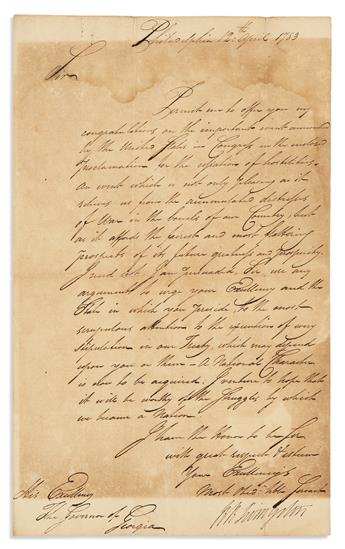 Philadelphia 12th April 1783
Sir
Permit me to offer you my
congratulations on the important event announced
by the United States in Congress in the enclosed
Proclamation for the cessation of hostilities.
An event which is not only pleasing as it
relieves us from the accumulated distresses
of War in the bowels of our Country, but
as it affords the fairest and most flattering
prospects of its future greatness and prosperity.
I need not, I am persuaded, Sir, use any
arguments to urge your Excellency and the
State in which you preside, to the most
scrupulous attention to the execution of every
stipulation in our Treaty, which may depend
upon you or them – A National Character
is now to be acquired. I venture to hope that
it will be worthy of the struggles by which
we became a Nation.
I have the Honor to be Sir
with great respect & esteem
Your Excellency's
Most Obedt. Hble Servant
His Excellency
The Governor of
Georgia
RR Livingston